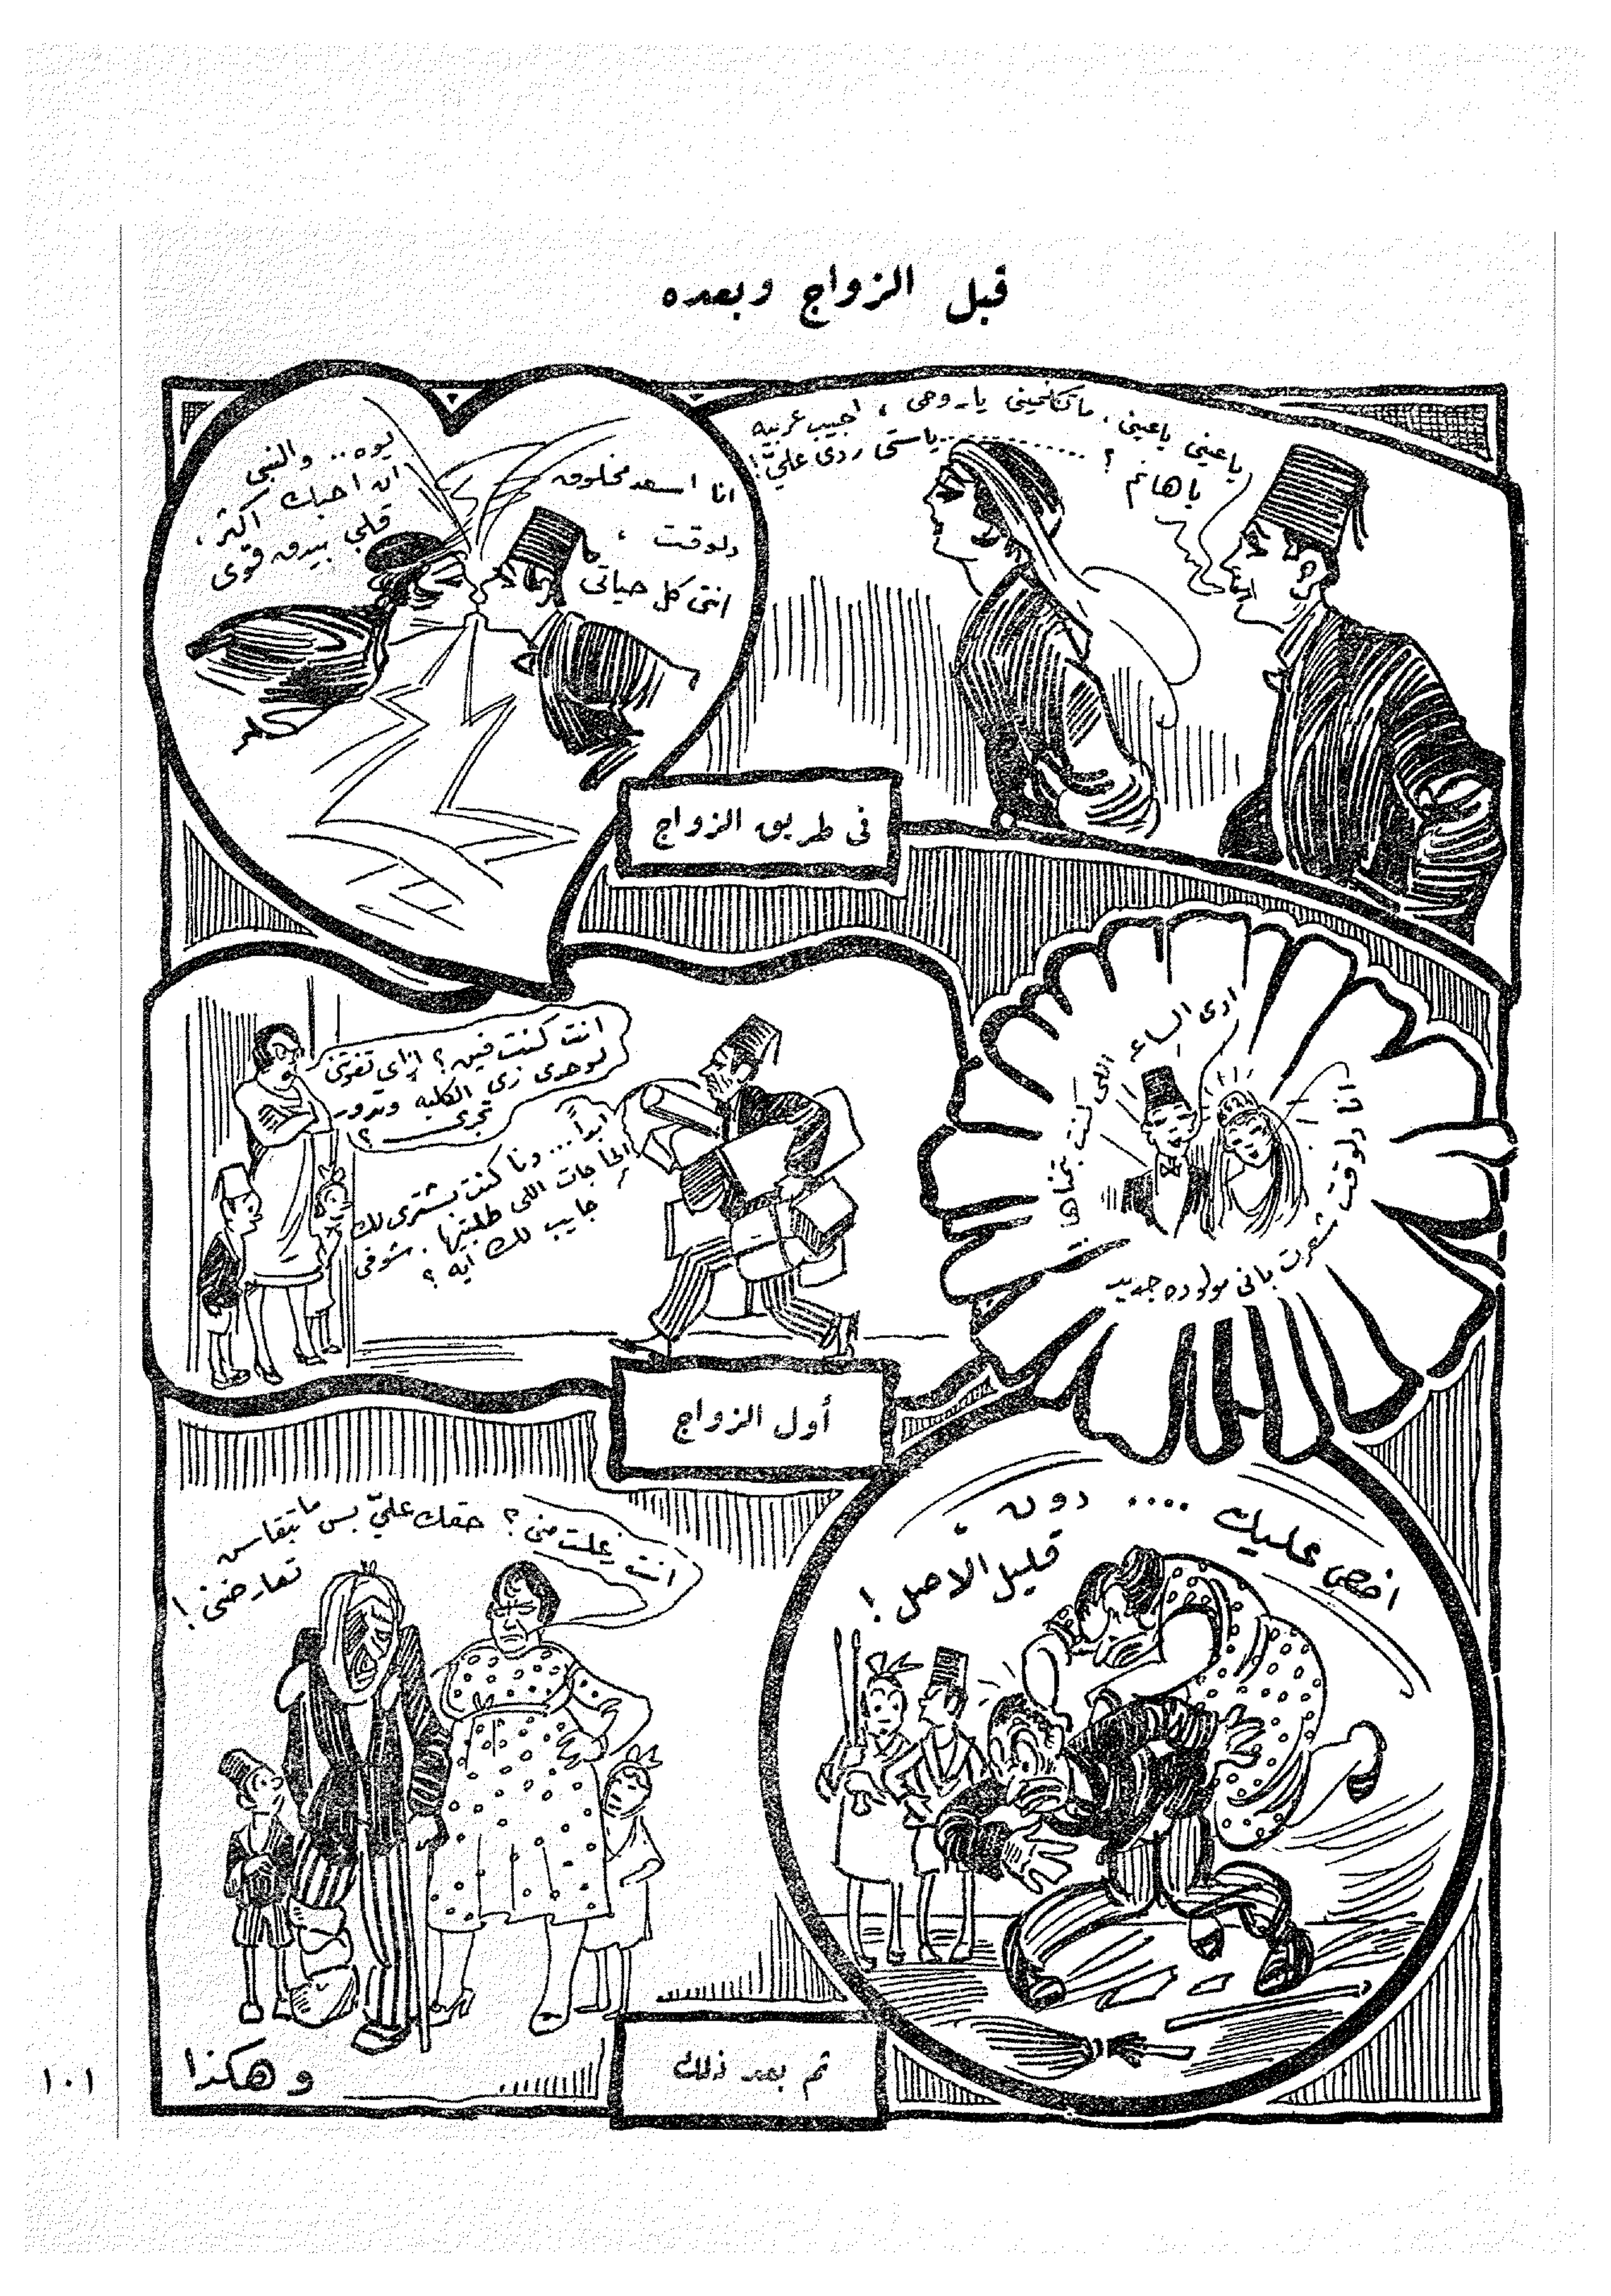 قبل الزواج وبعده
ياعينى ياعينى . ماتكلمينى ياروحى ، اجيب عربيه
ياهانم ؟ ........... ياستى ردى علىّ !
انا اسعد مخلوق
دلوقت ،
انتى كل حياتى
يوه .. والنبى
انا احبك اكتر ،
قلبى بيدق قوى
فى طريق الزواج
ادى الساعه اللى كنت بتمناها ..
انا دلوقت شعرت بانى مولوده جديد
انت كنت فين ؟ إزاى تفوتنى
لوحدى زى الكلبه وتدور
تجرى ؟
ابداً ... دنا كنت بشترى لك
الحاجات اللى طلبتيها . شوفى
جايب لك ايه ؟
أول الزواج
اخص عليك .... دون .
قليل الاصل !
انت زعلت منى ؟ حقك علىّ بس ماتبقاش
تعارضنى !
ثم بعد ذلك
وهكذا
١٠١